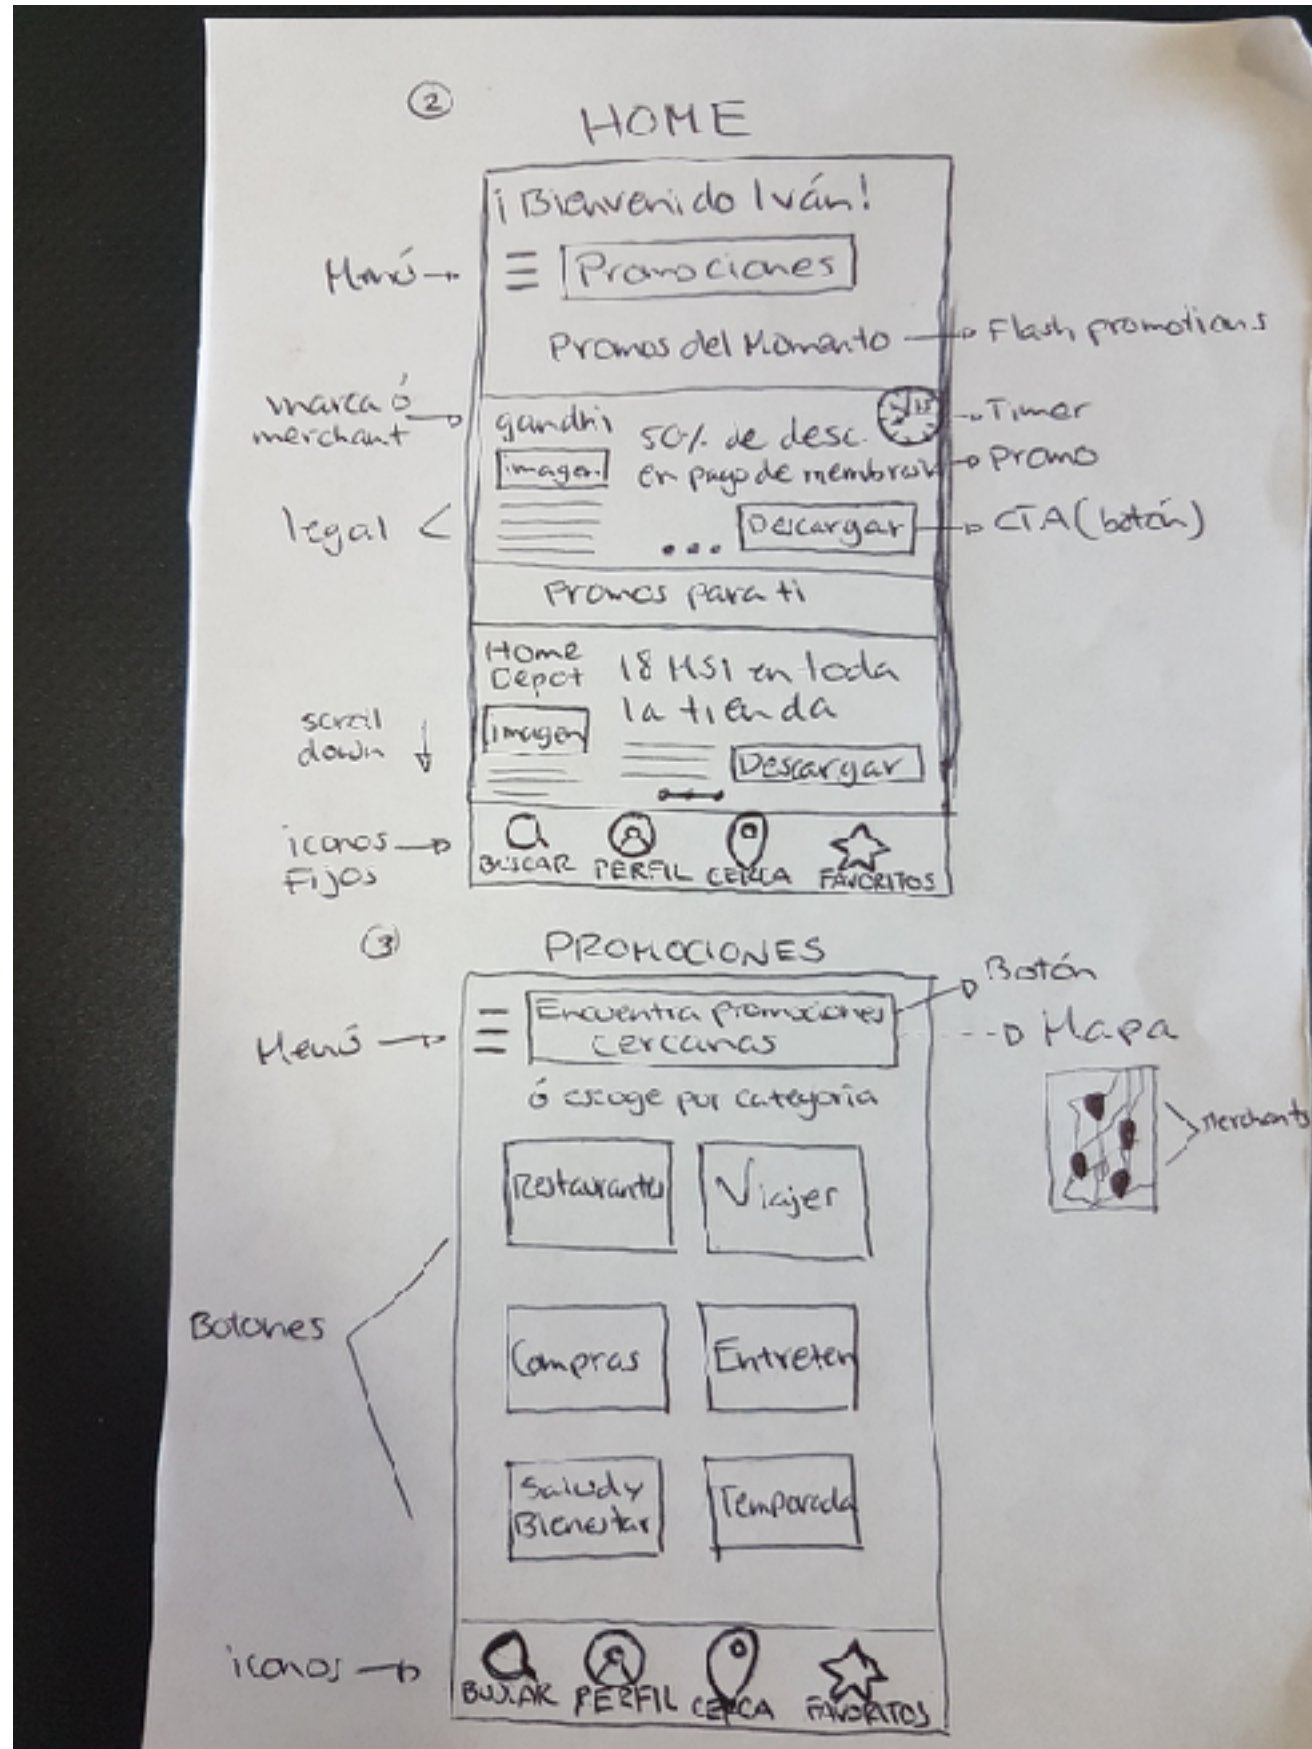 2
HOME
¡Bienvenido Iván!
Menú
Promociones
Promos del Momento
Flash promotions
marca ó
merchant
gandhi
50% de desc.
Timer
imagen
en pago de membresía
promo
legal
Descargar
CTA (botón)
Promos para ti
Home
Depot
18 MSI en toda
la tienda
scroll
down
imagen
Descargar
iconos
Fijos
BUSCAR
PERFIL
CERCA
FAVORITOS
3
PROMOCIONES
Botón
Menú
Encuentra promociones
cercanas
Mapa
ó escoge por categoría
Merchants
Restaurantes
Viajes
Botones
Compras
Entreten
Salud y
Bienestar
Temporada
iconos
BUSCAR
PERFIL
CERCA
FAVORITOS